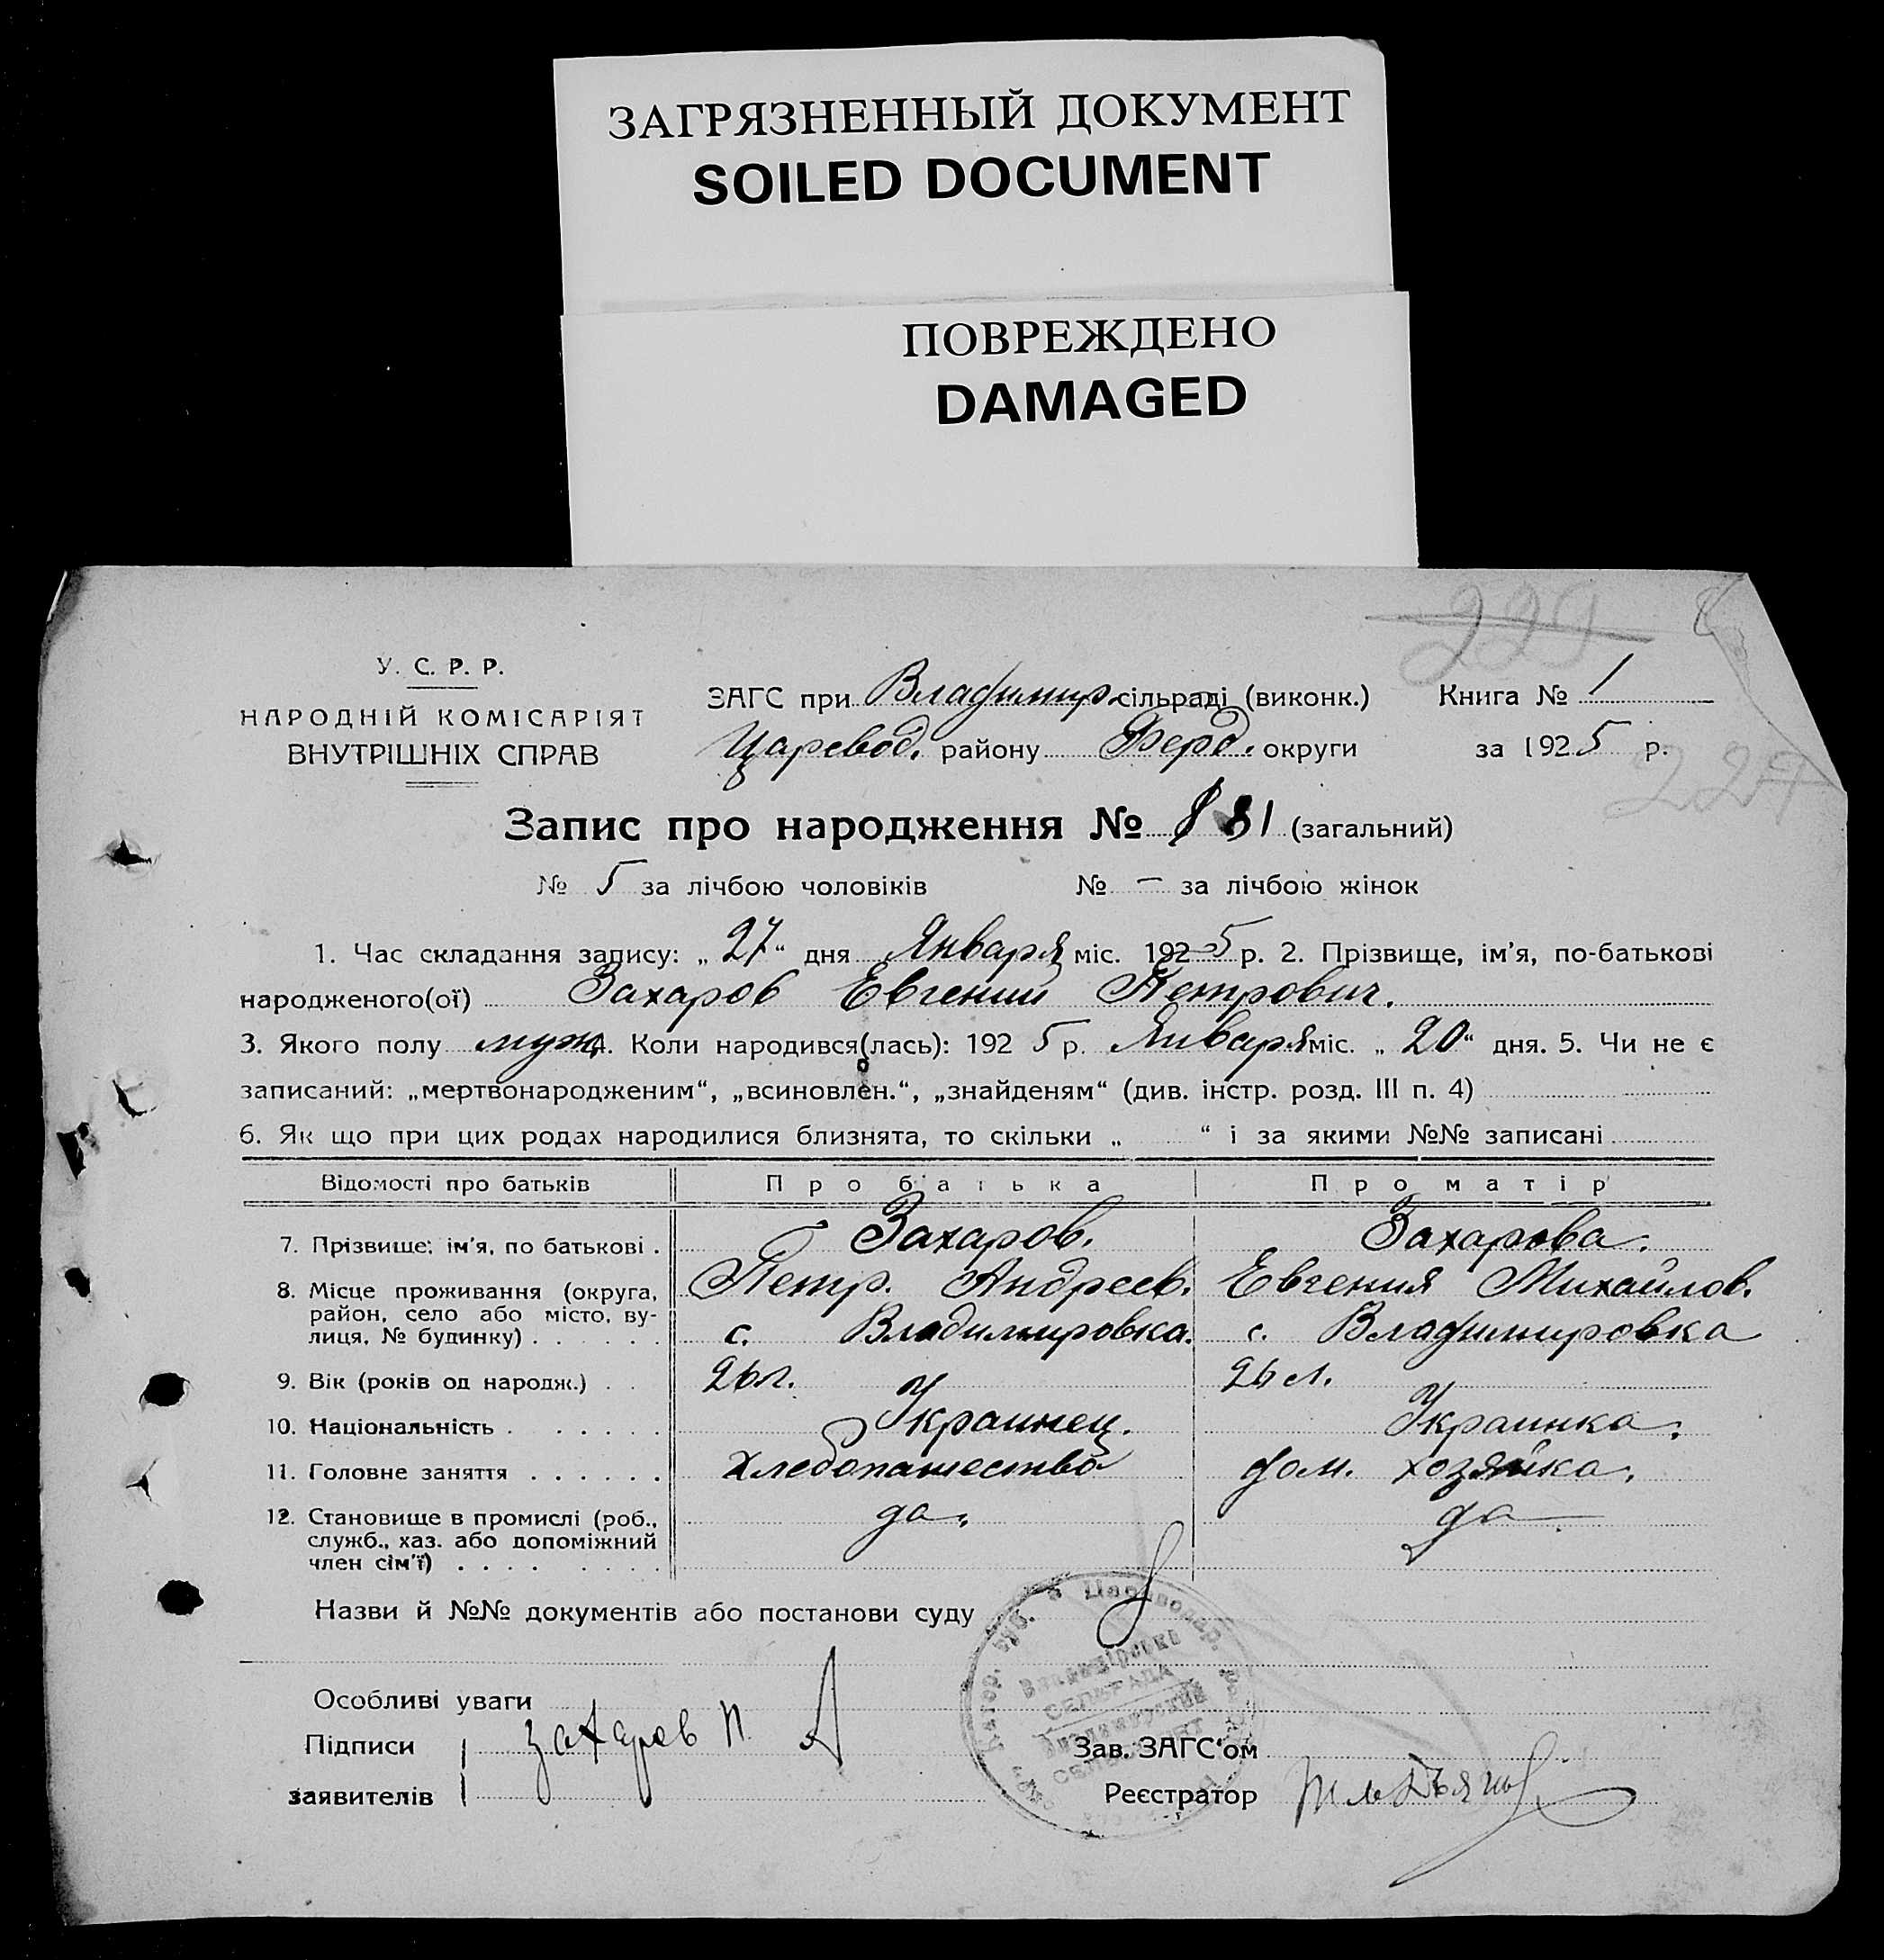 ЗАГРЯЗНЕННЫЙ ДОКУМЕНТ
SOILED DOCUMENT
ПОВРЕЖДЕНО
DAMAGED
229
У. С. Р. Р.
НАРОДНІЙ КОМІСАРІЯТ
ВНУТРІШНІХ СПРАВ
ЗАГС при Владимир. сільраді (виконк.) Книга № 1
Царевод. району Ферд. округи за 1925 р.
227
Запис про народження № 81 (загальний)
№ 5 за лічбою чоловіків № — за лічбою жінок
1. Час складання запису: „27“ дня Января міс. 1925 р. 2. Прізвище, ім'я, по-батькові
народженого(ої) Захаров Евгений Петрович.
3. Якого полу муж. 4. Коли народився(лась): 1925 р. Января міс. „20“ дня. 5. Чи не є
записаний: „мертвонародженим“, „всиновлен.“, „знайденям“ (див. інстр. розд. III п. 4)
6. Як що при цих родах народилися близнята, то скільки „ “ і за якими №№ записані
Відомості про батьків Про батька Про матір
7. Прізвище; ім'я, по батькові . Захаров. Захарова.
Петр. Андреев. Евгения Михайлов.
8. Місце проживання (округа, район, село або місто, вулиця, № будинку) . . . . . . с. Владимировка. с. Владимировка
9. Вік (років од народж.) . . 26 л. 26 л.
10. Національність . . . . . . Украинец. Украинка.
11. Головне заняття . . . . . . Хлебопашество дом. хозяйка.
12. Становище в промислі (роб., служб., хаз. або допоміжний член сім'ї) . . . . . . . . да. да
Назви й №№ документів або постанови суду
Особливі уваги
Підписи
заявителів
Захаров П. А
СЕЛЬРАДА
Зав. ЗАГС'ом
Реєстратор